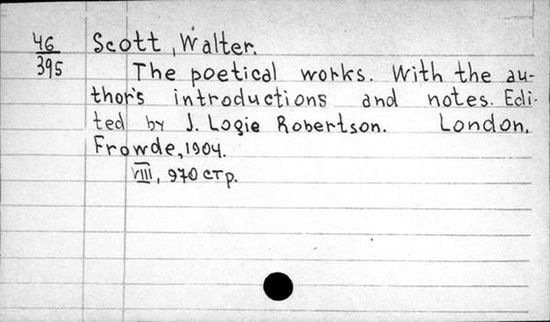 46
395
Scott, Walter.
The poetical works. With the au-
thor's introductions and notes. Edi-
ted by J. Logie Robertson. London,
Frowde, 1904.
VIII, 970 стр.